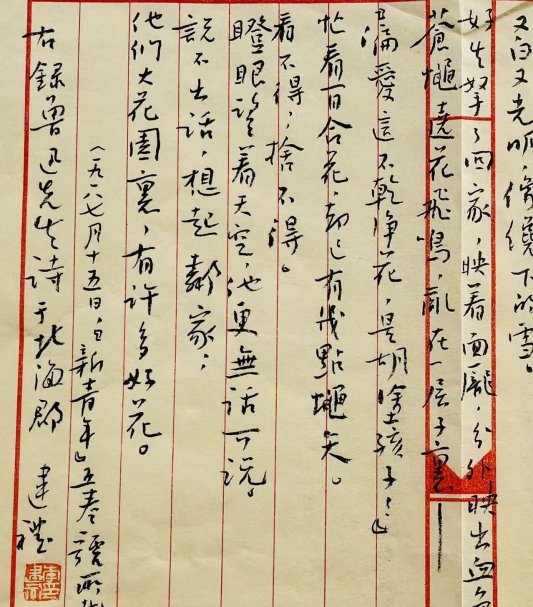 又白又光明，像才下的雪。
好生拿了回家，映着面龐，分外映出血色
蒼蠅遶花飛鳴，亂在一屋子裏——
偏愛這不乾淨花，是胡塗孩子！」
忙看百合花，却已有幾點蠅矢。
看不得；捨不得。
瞪眼望着天空，他更無話可說。
說不出話，想起鄰家：
他們大花園裏，有許多好花。
（一九一八年七月十五日，「新青年」五卷
右錄魯迅先生詩于北海郡　建禮